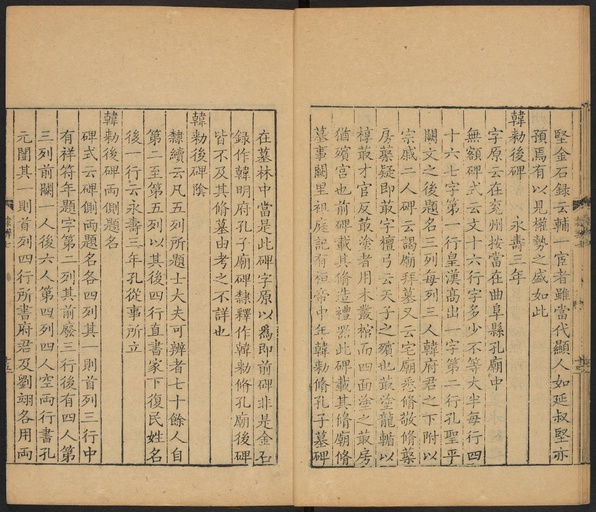 堅金石錄云輔一宦者雖當代顯人如延叔堅亦
預焉有以見權勢之盛如此
韓勅後碑　永壽三年
字原云在兖州按當在曲阜縣孔廟中
無額碑式云文十六行字多少不等大半每行四
十六七字第一行皇漢高出一字第二行孔聖乎
闕文之後題名三列每列三人韓府君之下附以
宗戚二人碑云謁廟拜墓又云宅廟悉脩敬脩
房菆疑即菆字檀弓云天子之殯也菆塗龍輴以
椁菆才官反菆塗者用木叢棺而四面塗之菆房
猶殯宮也前碑載其脩造禮器此碑載其脩廟脩
墓事闕里祖庭記有桓帝中年韓勅脩孔子墓碑
在墓林中當是此碑字原以為即前碑非是金石
錄作韓明府孔子廟碑隸釋作韓勅脩孔廟後碑
皆不及其脩墓由考之不詳也
韓勅後碑陰
隸續云凡五列所題士大夫可辨者七十餘人自
第二至第五列以其後四行直書家下復民姓名
後一行云永壽三年孔從事所立
韓勅後碑兩側題名
碑式云碑側兩題名各四列其一則首列三行中
有祥符年題字第二列其前廢三行後有四人第
三列前闕一人後六人第四列四人空兩行書孔
元闇其一則首列四行所書府君及劉翊各用兩